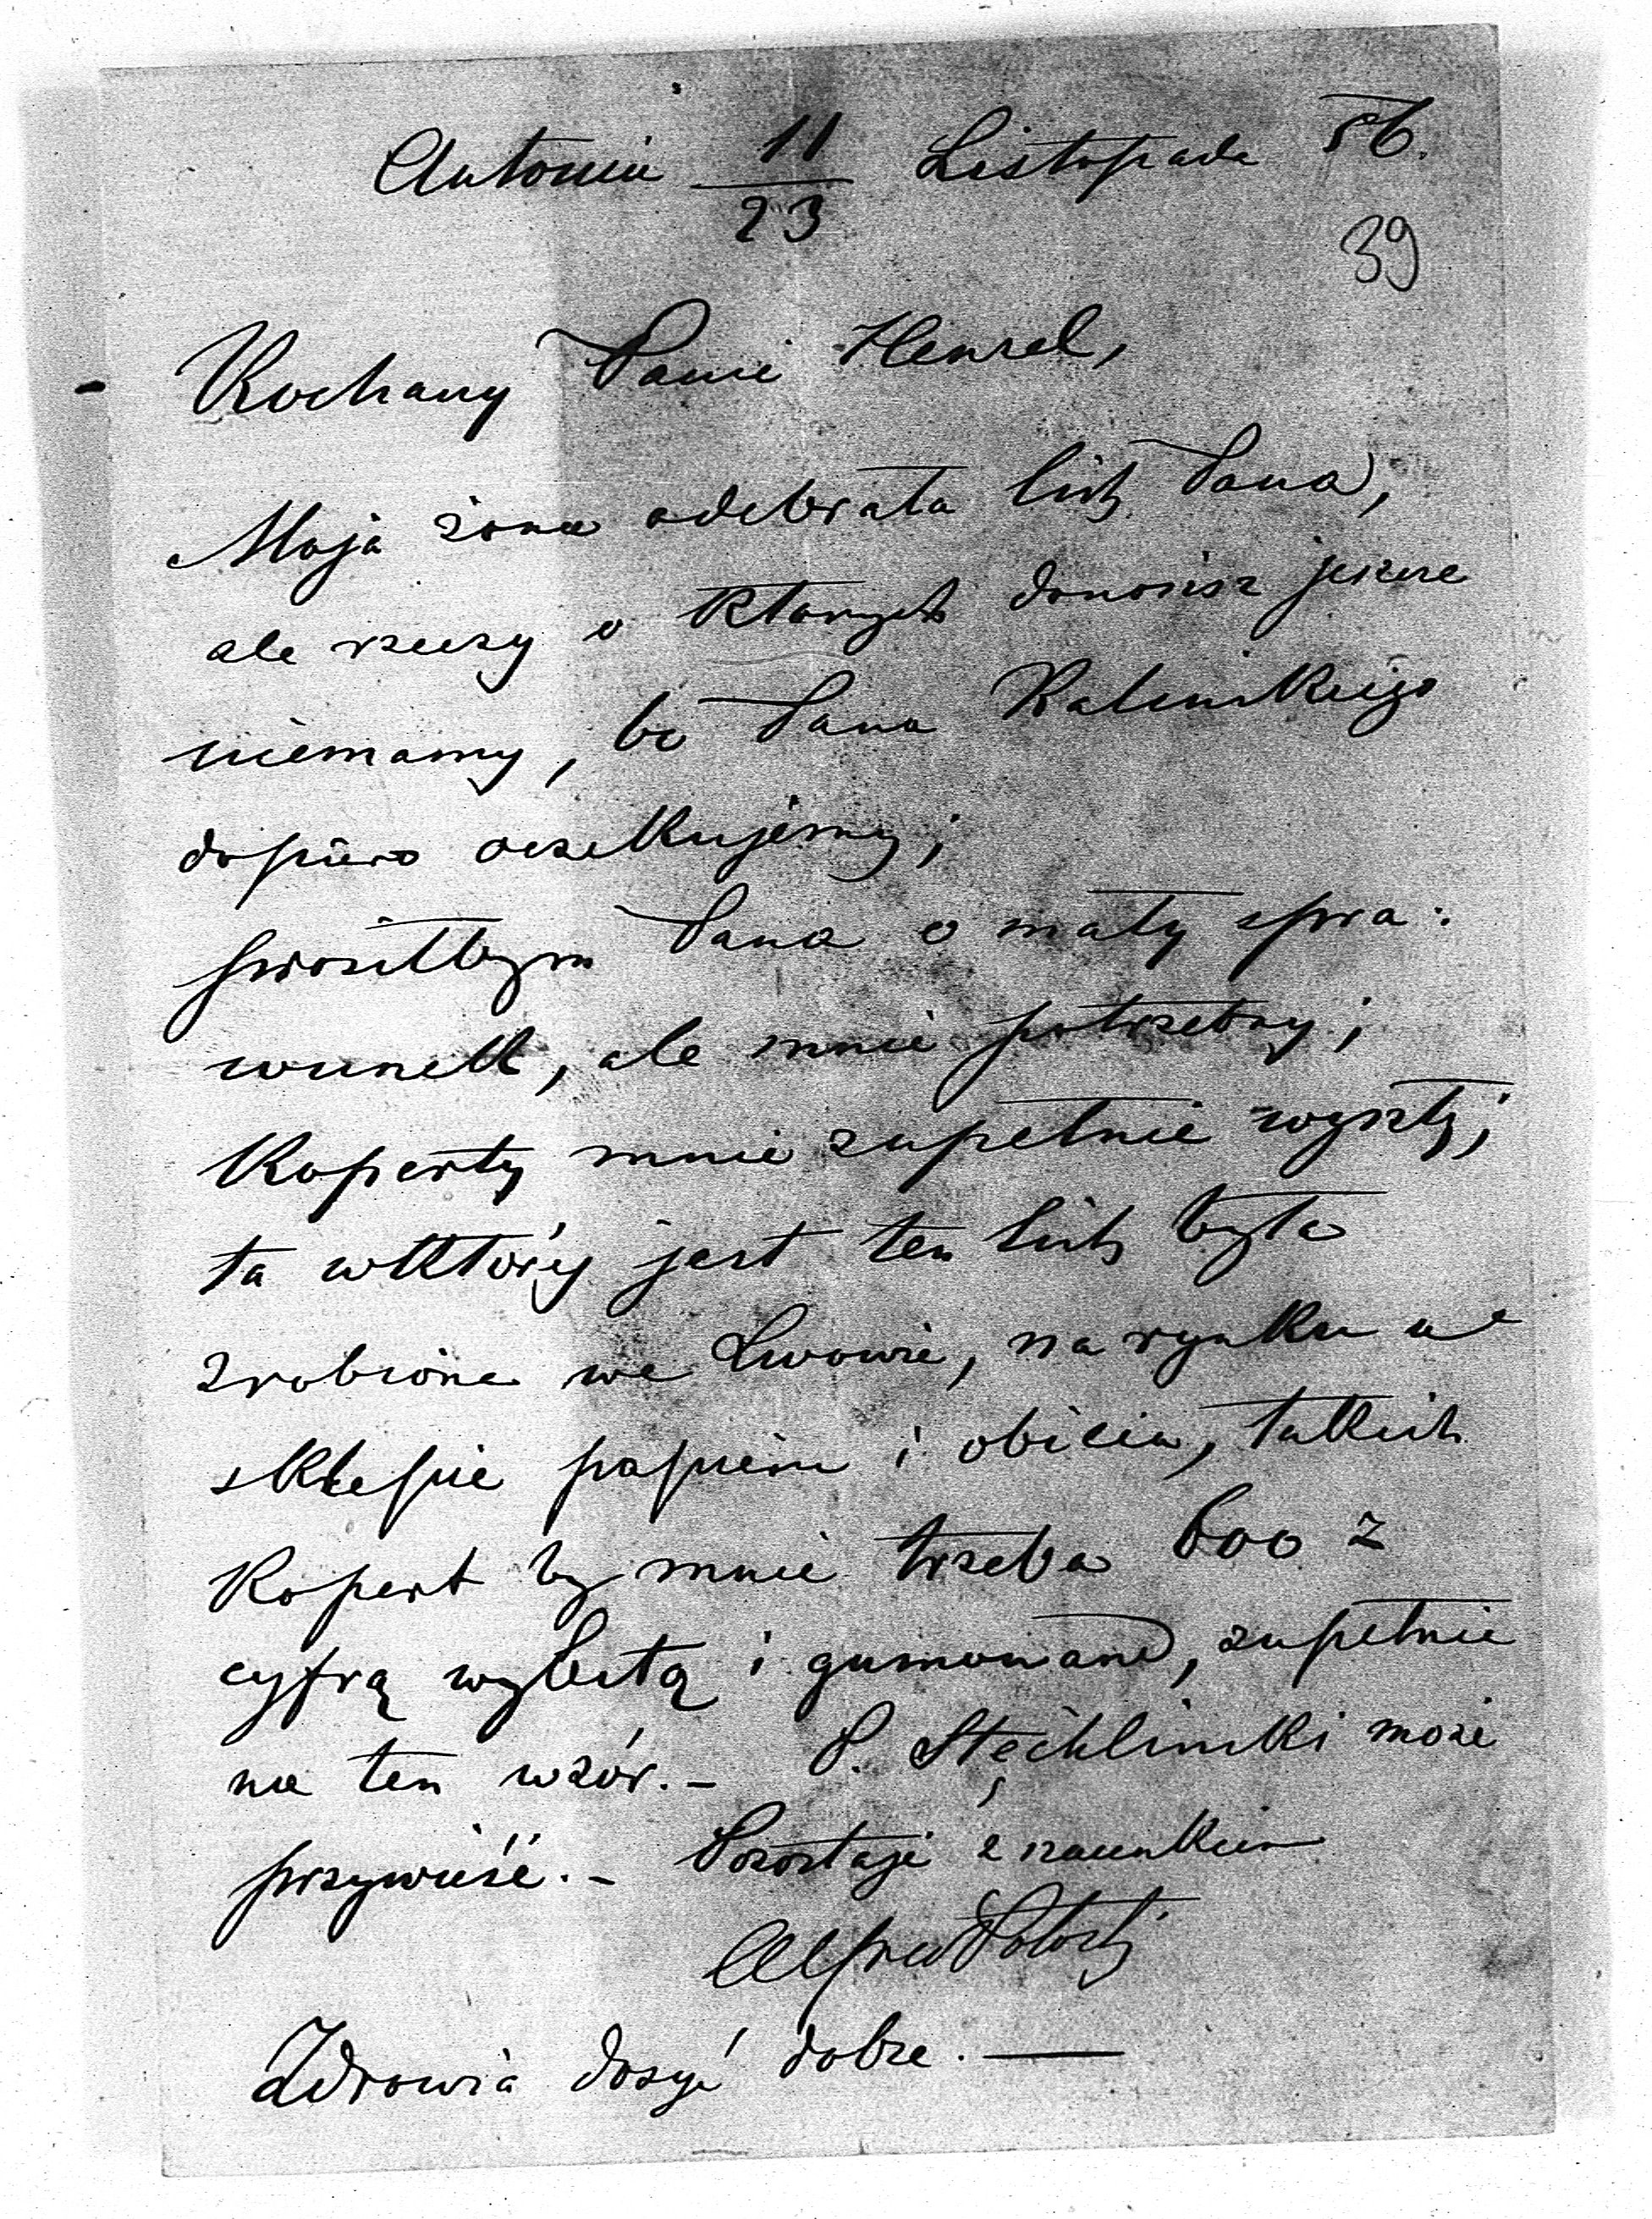 Antonin 11/23 Listopada 56.
39
Kochany Panie Hensel,
Moja żona odebrała list Pana,
ale rzeczy o których donosisz jeszcze
niemamy, bo Pana Kalinskiego
dopiero oczekujemy;
prosiłbym Pana o mały spra-
wunek, ale mnie potrzebny;
Koperty mnie zupełnie wyszły;
ta wktóréj jest ten list była
zrobiona we Lwowie, na rynku we
sklepie papieru i obicia, takich
Kopert by mnie trzeba 600 z
cyfrą wybitą i gumowane, zupełnie
na ten wzór. – P. Stęchlinski może
przywieść. – Pozostaje z szacunkiem
Alfred Potocki
Zdrowia dosyć dobre. —